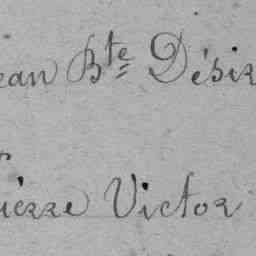 ean Bte Désir
ierre Victor